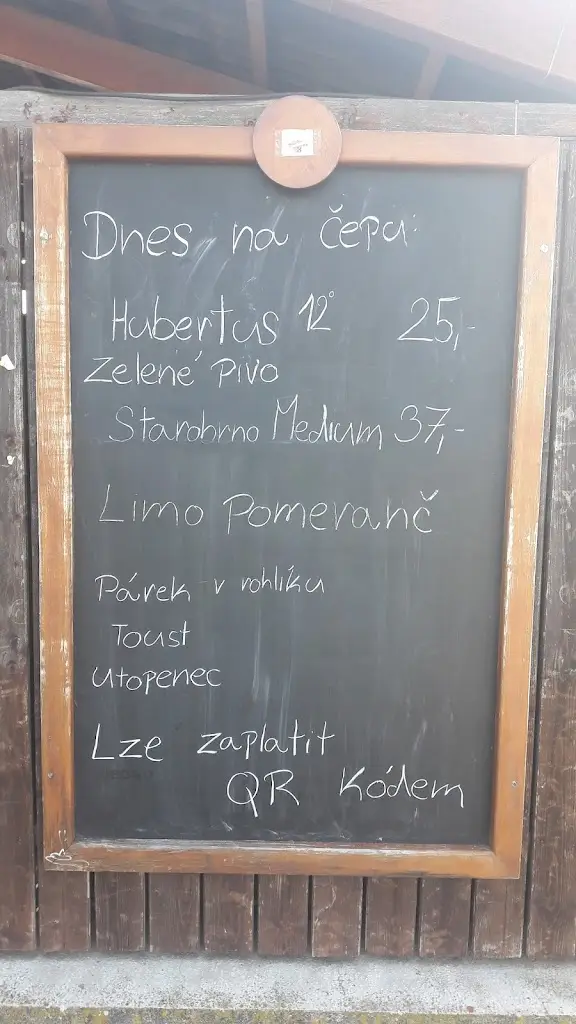 Dnes na čepu:
Hubertus 12° 25,-
Zelené pivo
Starobrno Medium 37,-
Limo Pomeranč
Párek v rohlíku
Toust
Utopenec
Lze zaplatit
QR Kódem